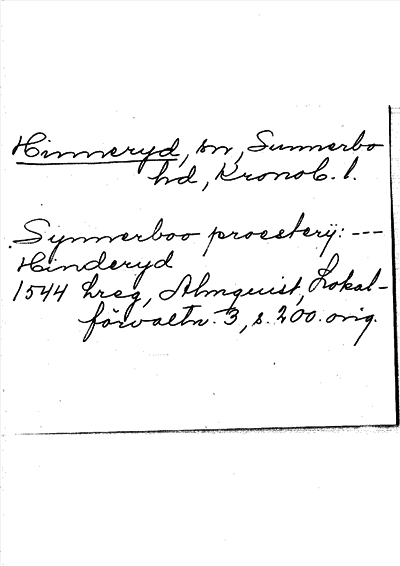 Hinneryd, sn, Sunnerbo
hd, Kronob. l.
Synnerboo proesterij: ---
Hinderyd
1544 hreg, Almquist, Lokal-
förvaltn. 3, s. 200. orig.